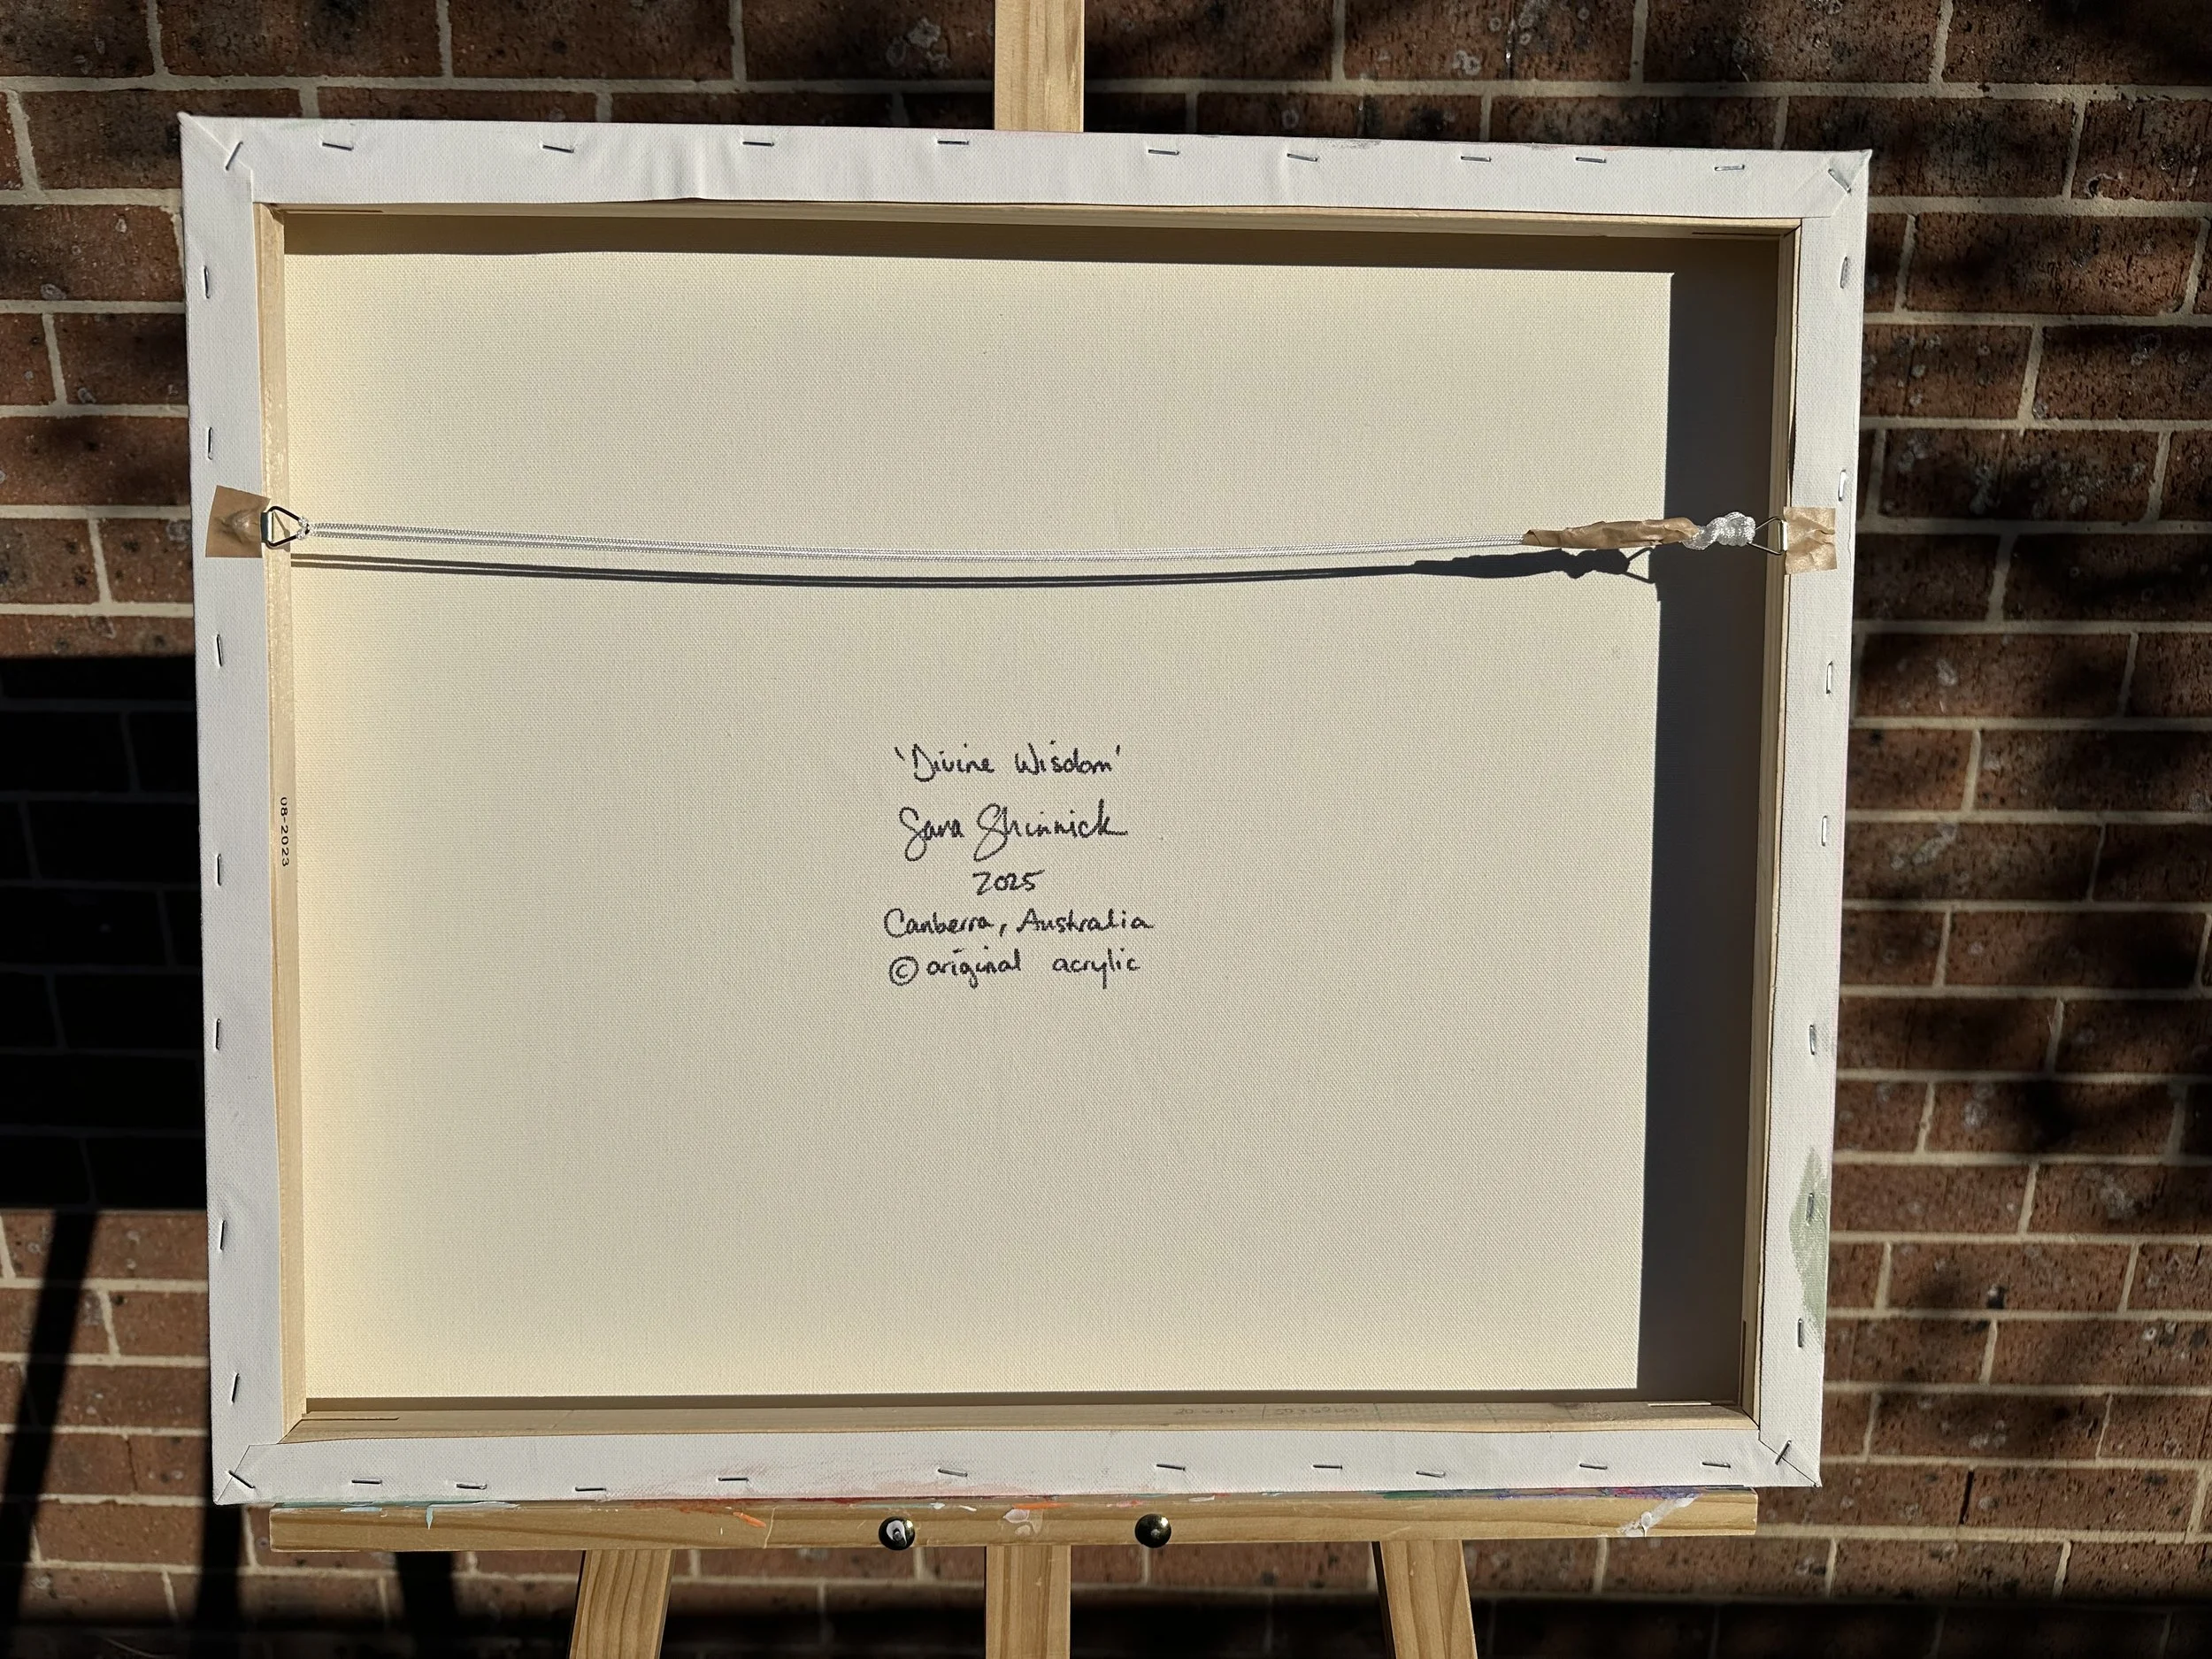 'Divine Wisdom'
Sara Shinnick
2025
Canberra, Australia
© original acrylic
08-2023